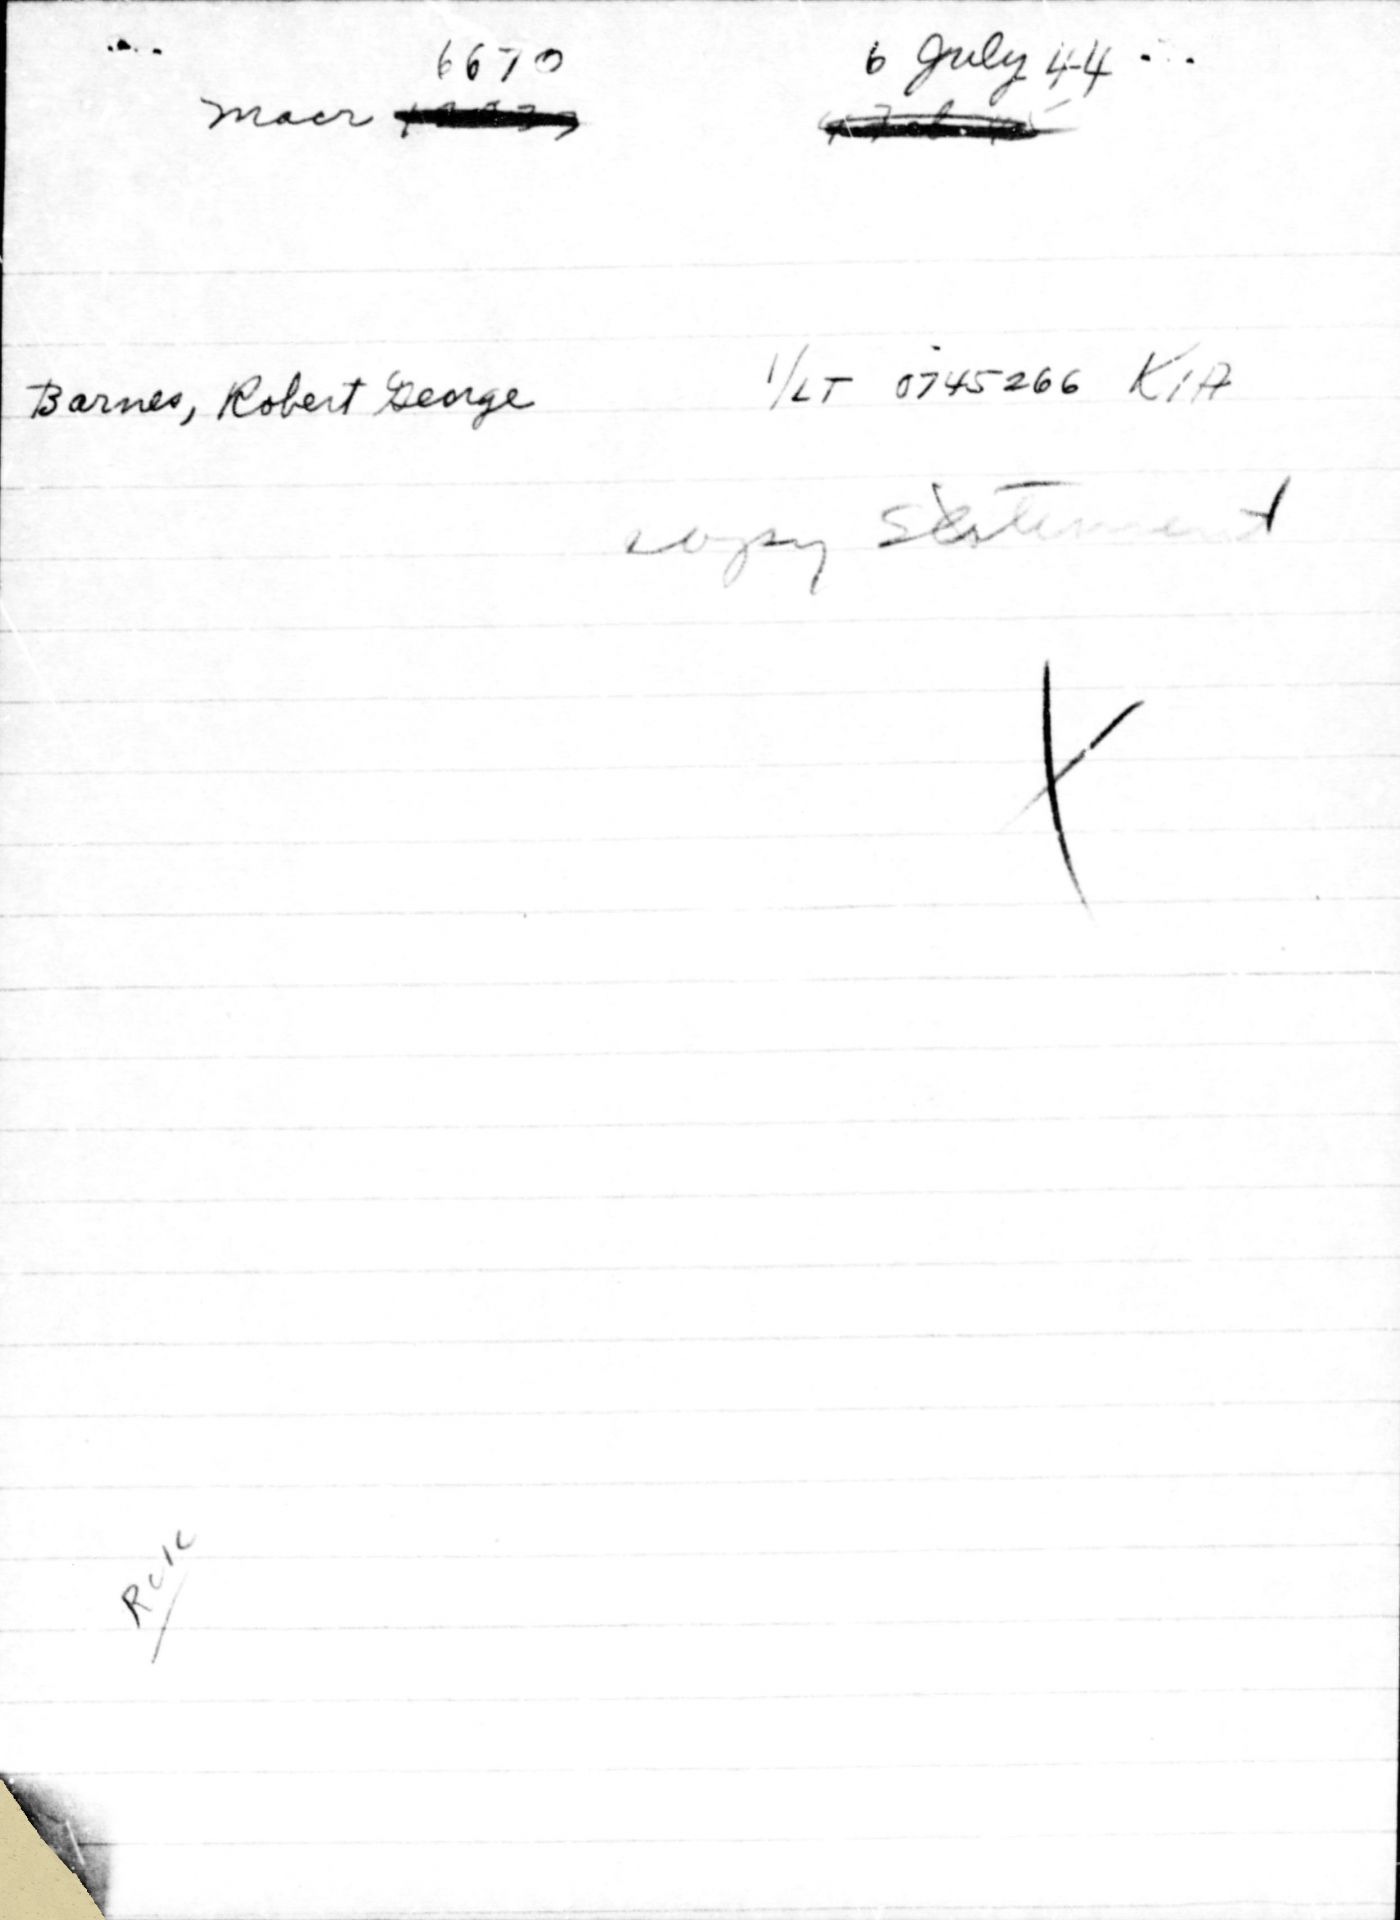 6670 6 July 44
Macr
Barnes, Robert George 1/LT 0745266 KIA
copy Statement